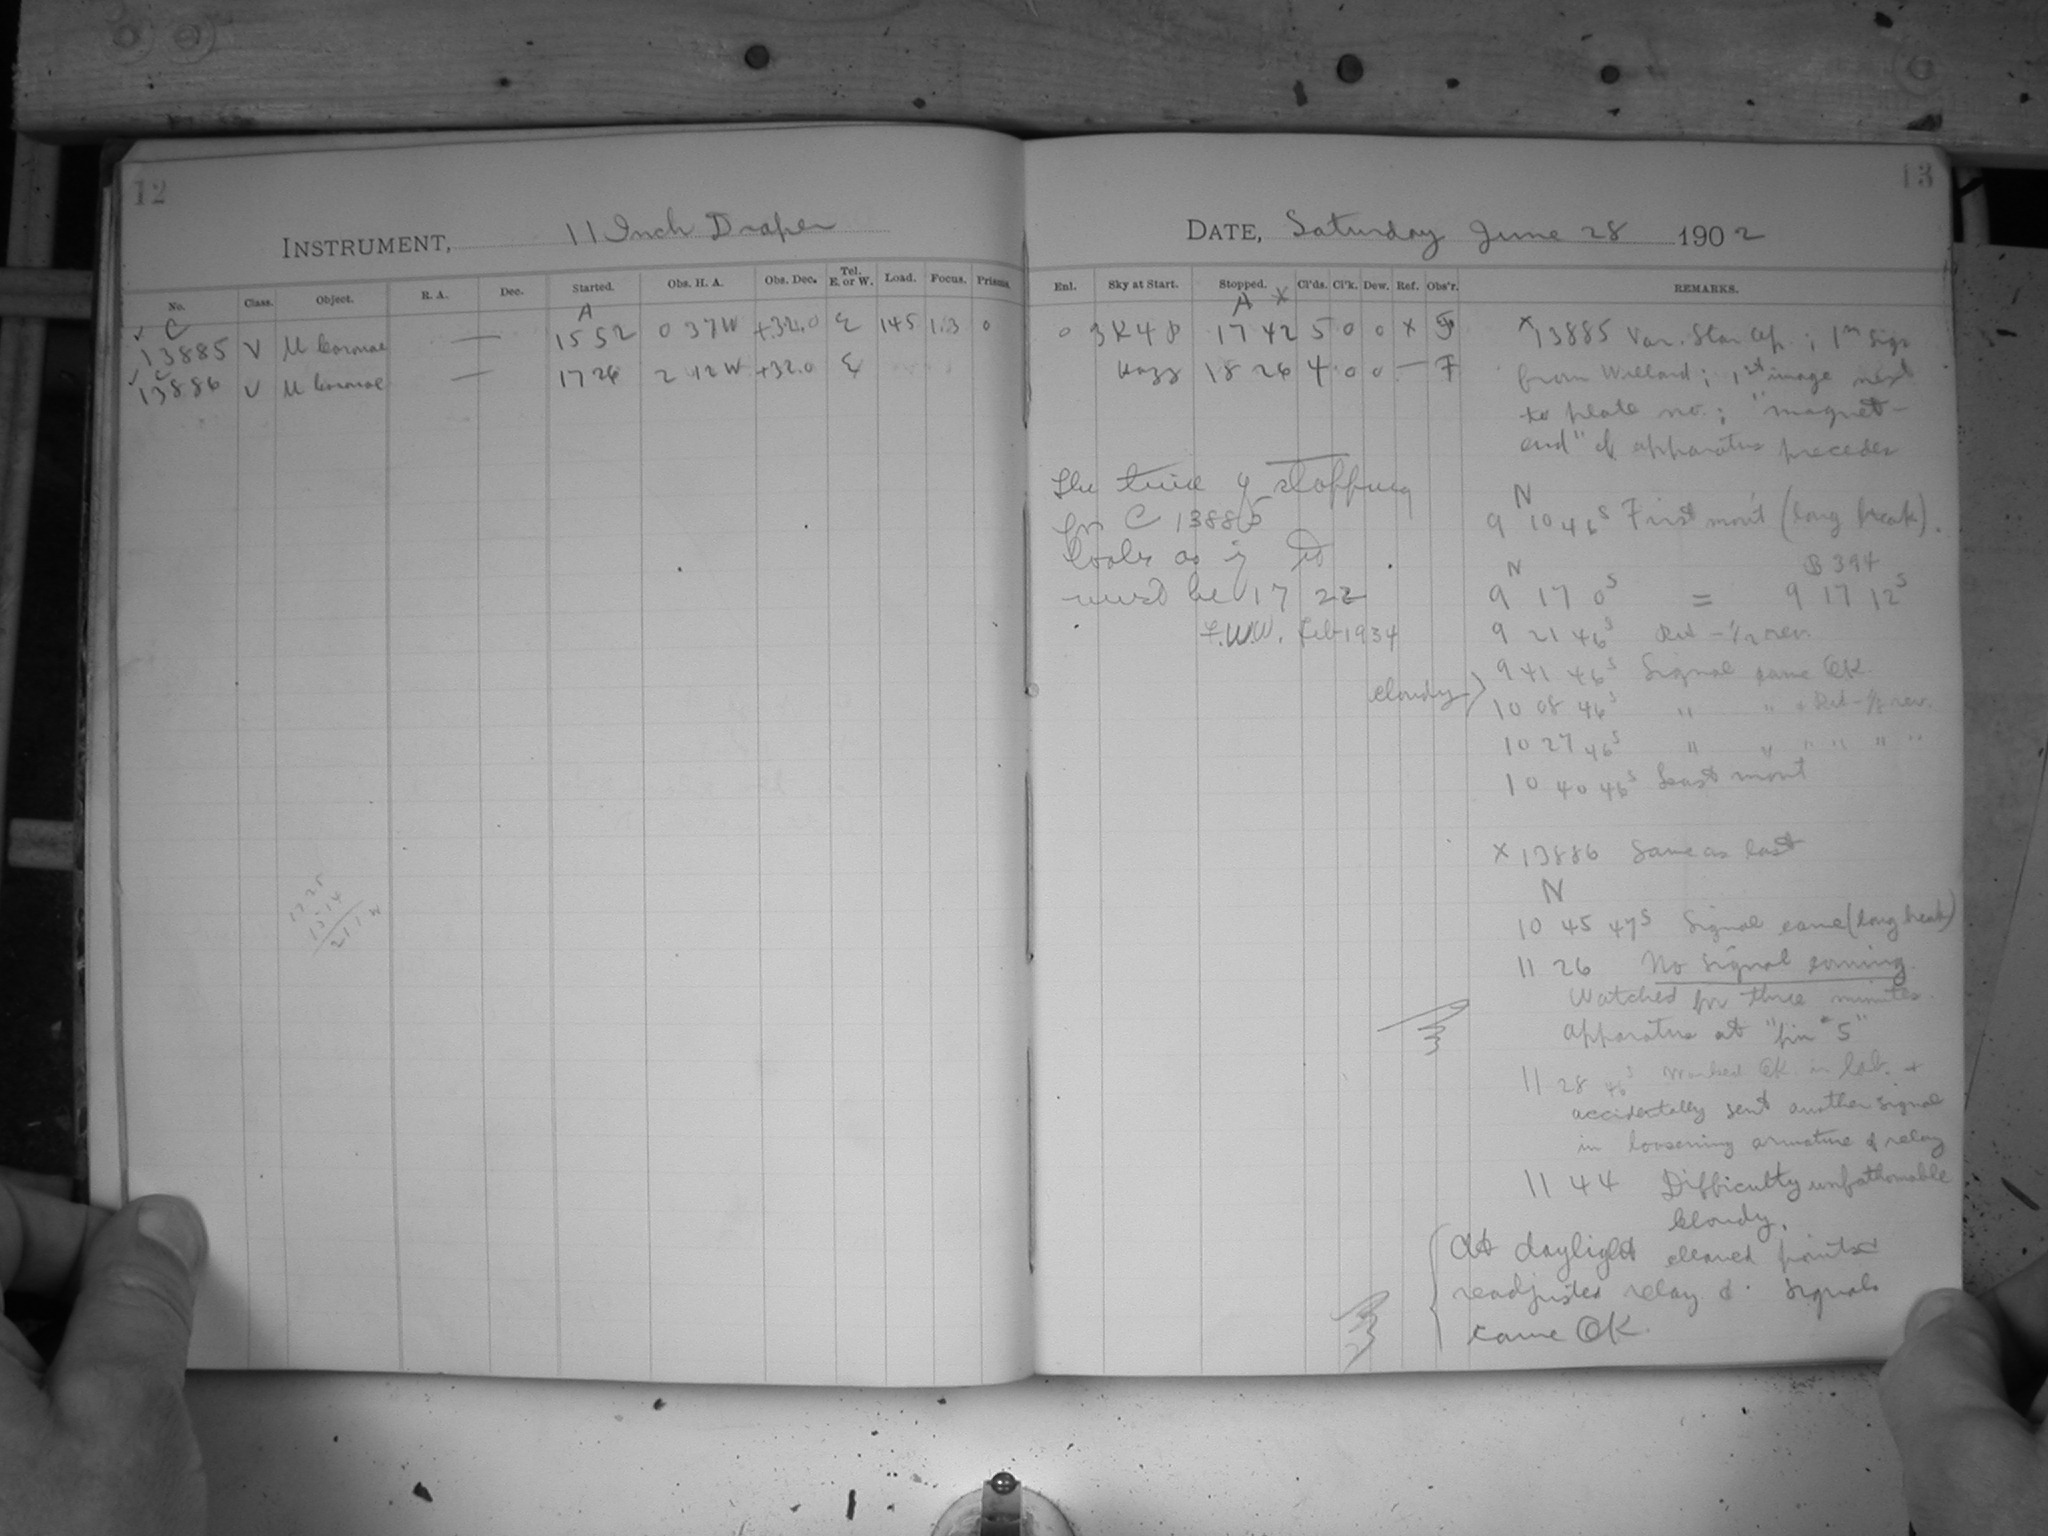 12
INSTRUMENT, 11 Inch Draper
No. Class. Object. R. A. Dec. Started. Obs. H. A. Obs. Dec. Tel. E. or W. Load. Focus. Prisms.
C A
13885 V U Coronae — 15 52 0 37 W +32.0 E 145 11.3 0
13886 V U Coronae — 17 26 2 12 W +32.0 E
17 25
15 14
2 11 W
13
DATE, Saturday June 28 1902
Enl. Sky at Start. Stopped. Cl'ds. Cl'k. Dew. Ref. Obs'r. REMARKS.
A X
0 3 K 4 P 17 42 5 0 0 X F
Hazy 18 26 4 0 0 — F
The time of stopping
for C 13885
looks as if it
must be 17 22
F.W.W. Feb 1934
X 13885 Var. Star Ap.; 1st Sign
from Willard; 1st image next
to plate no.; "magnet-
end" of apparatus precedes
N
9 10 46s First mov't (long break).
N B 394
9 17 0s = 9 17 12s
9 21 46s Rit - 1/2 rev.
9 41 46s Signal came OK
cloudy
10 08 46s " " Rit - 1/2 rev.
10 27 46s " " " " " "
10 40 46s Last mov't
X 13886 Same as last
N
10 45 47s Signal came (long break)
11 26 No signal coming.
Watched for three minutes.
apparatus at "pin # 5"
11 28 46s Worked OK in lab. +
accidentally sent another signal
in loosening armature of relay
11 44 Difficulty unfathomable
Cloudy.
At daylight cleaned points
readjusted relay & signals
came OK.